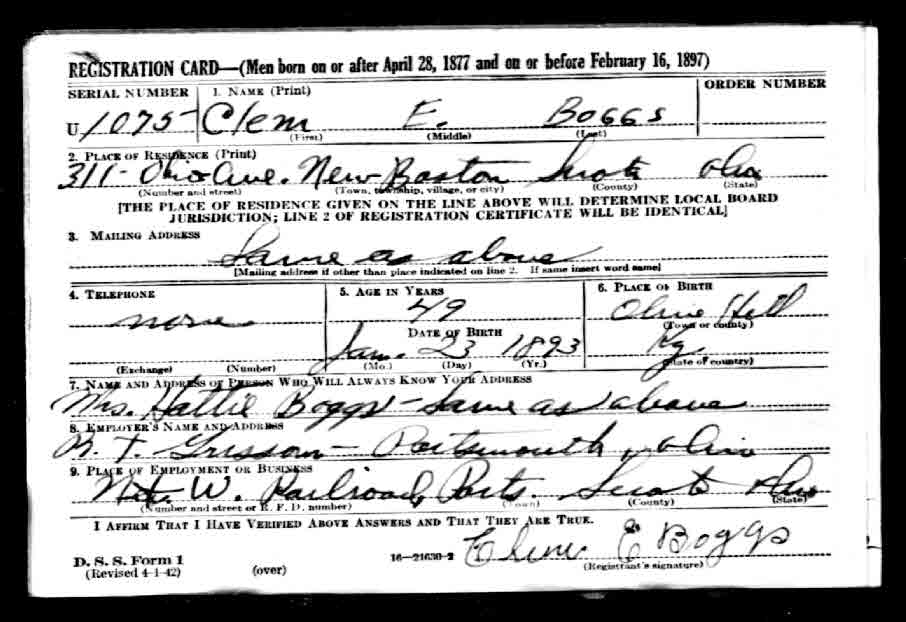 REGISTRATION CARD—(Men born on or after April 28, 1877 and on or before February 16, 1897)
SERIAL NUMBER 1. NAME (Print) ORDER NUMBER
U 1075 Clem E. Boggs
(First) (Middle) (Last)
2. PLACE OF RESIDENCE (Print)
311- Ohio Ave. New Boston Scioto Ohio
(Number and street) (Town, township, village, or city) (County) (State)
[THE PLACE OF RESIDENCE GIVEN ON THE LINE ABOVE WILL DETERMINE LOCAL BOARD
JURISDICTION; LINE 2 OF REGISTRATION CERTIFICATE WILL BE IDENTICAL]
3. MAILING ADDRESS
Same as above
[Mailing address if other than place indicated on line 2. If same insert word same]
4. TELEPHONE 5. AGE IN YEARS 6. PLACE OF BIRTH
none 49 Olive Hill
DATE OF BIRTH (Town or county)
Jan. 23 1893 Ky.
(Exchange) (Number) (Mo.) (Day) (Yr.) (State or country)
7. NAME AND ADDRESS OF PERSON WHO WILL ALWAYS KNOW YOUR ADDRESS
Mrs. Hattie Boggs - Same as above
8. EMPLOYER'S NAME AND ADDRESS
R. T. Grissom - Portsmouth, Ohio
9. PLACE OF EMPLOYMENT OR BUSINESS
N + W. Railroad, Ports. Scioto Ohio
(Number and street or R. F. D. number) (Town) (County) (State)
I AFFIRM THAT I HAVE VERIFIED ABOVE ANSWERS AND THAT THEY ARE TRUE.
E Boggs
D. S. S. Form 1 16—21630-2 (Registrant's signature)
(Revised 4-1-42) (over)